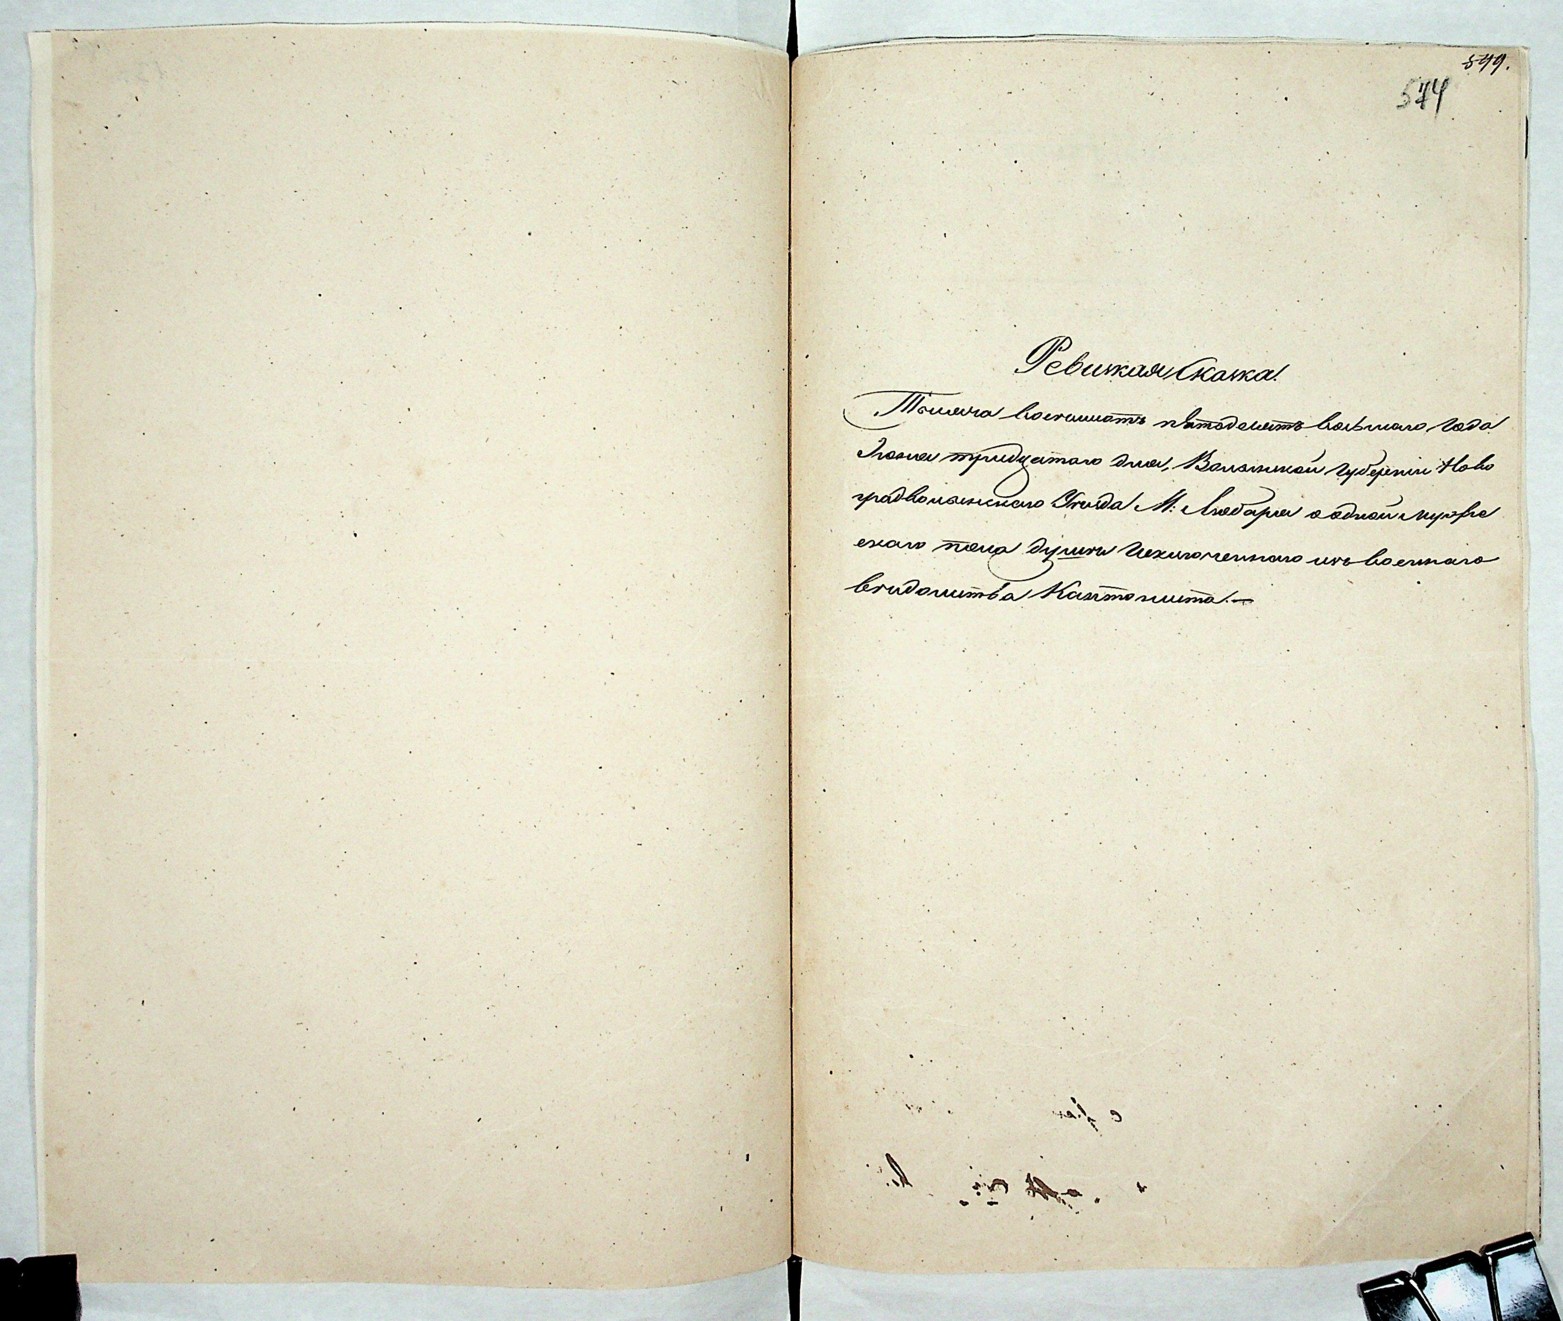 549.
574
Ревизкая Сказка.
Тысяча восемьсотъ пятдесятъ восьмаго года
Іюня тридцатаго дня, Волынской Губерніи Ново
градволынскаго Уезда М: Любара о одной мужес
скаго пола души Изключеннаго изъ военнаго
ведомства Кантониста.—